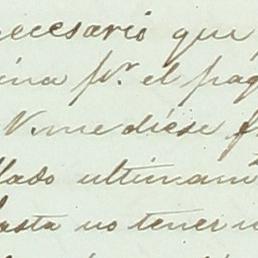 necesario que
ina pr. el pag
V. me diese f
llado ultimamte
hasta no tener n